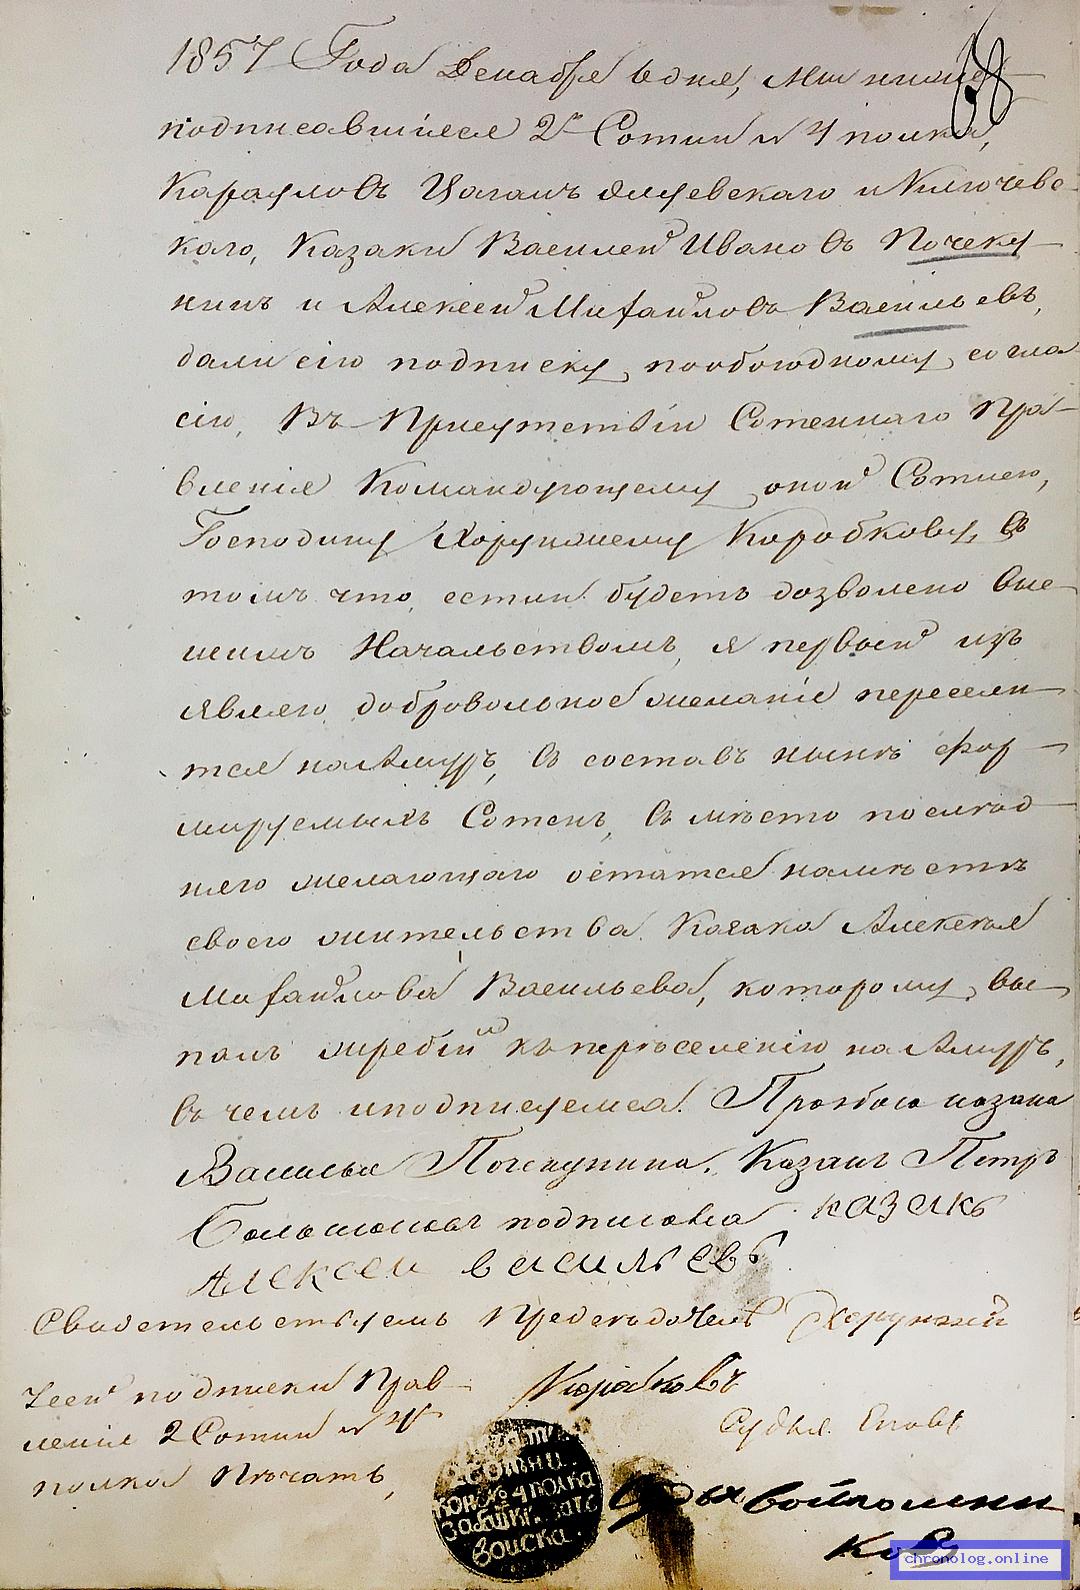 1857 Года Декабря дня, мы ниже
подписавшіеся 2й Сотни и 4 полка,
Карауловъ Цаганъ Олуевскаго и Ключевс
каго, Казаки Василей Ивановъ Почеку
нинъ и Алексей Михайловъ Васильевъ,
дали сію подписку, пообоюдному согла
сію, Въ Присутствіи Сотеннаго Пра
вленія Командующему оной Сотнею,
Господину Хорунжему Коробкову, въ
томъ что, естли будетъ дозволено выс
шимъ Начальствомъ, я первый изъ
являю добровольное желаніе переселит
тся наАмуръ, въ составъ нынѣ фор
мируемыхъ Сотенъ, въ мѣсто послѣд
няго желающаго остатся намѣстѣ
своего жительства Казака Алексѣя
Михайлова Васильева, которому вы
палъ жребій къ перѣселенію на Амуръ,
въ чемъ иподписуемся. Прозбою казака
Василья Почекунина. Казакъ Петръ
подписова казакъ
Алексеи василъевъ
Свидетельствуемъ Председатель Хорунжій
Коробковъ
сей подписки Прав
леніе 2 Сотни и 4й
полка Пѣчать,
Судья
2 Сотьни
кон № 4 полка
Забайк. Каз
воиска
Судья войломни
ковъ
chronolog.online